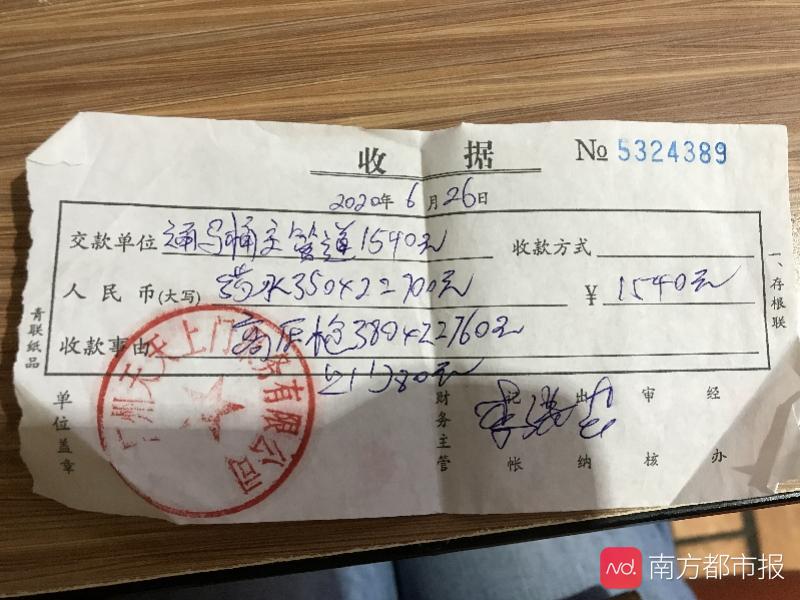 收 据 № 5324389
2020年6月26日
交款单位 通马桶主管道1540元 收款方式
人民币(大写) 药水350×2=700元 ¥ 1540元
收款事由 高压枪380×2=760元
80元
一、存根联
青联纸品
单位盖章
财务主管 记帐 出纳 审核 经办
天天上门服务有限公司
南方都市报